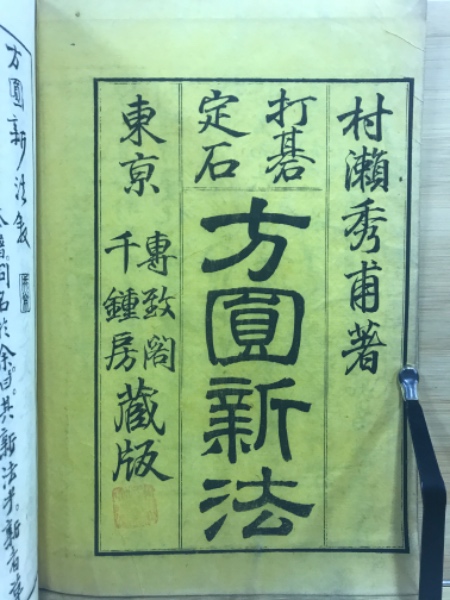 村瀨秀甫著
打碁
定石
方圓新法
東京
專致閣
千鍾房
藏版
方圓新法敘